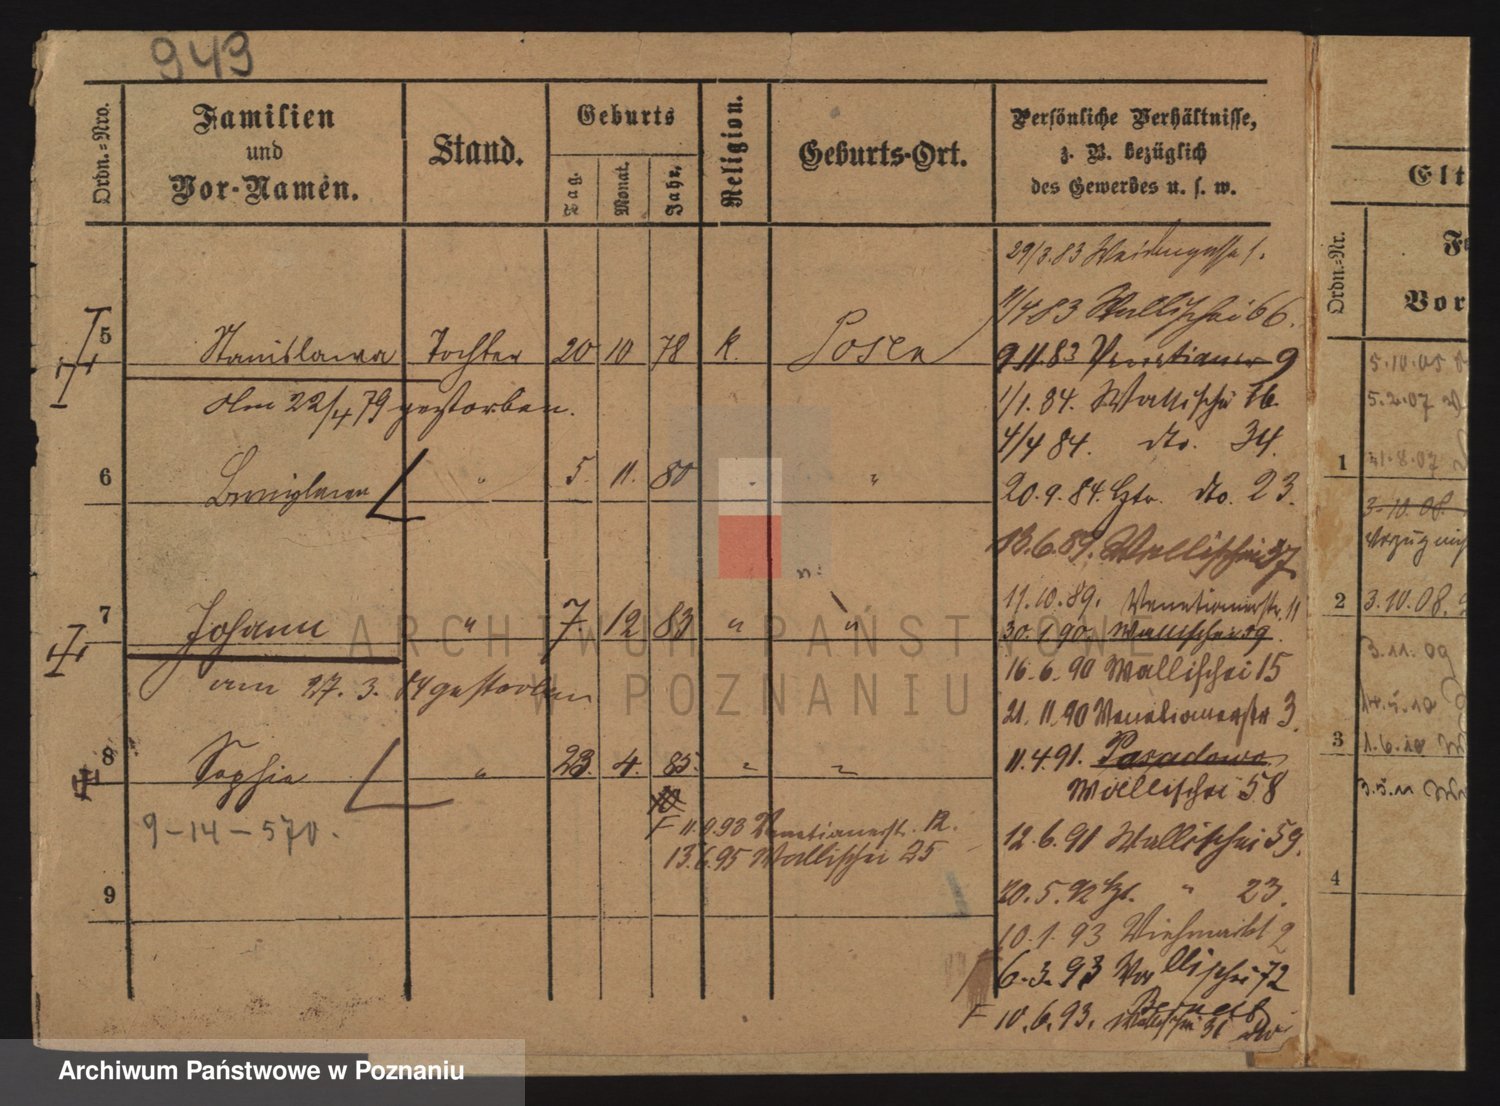 943
Ordn.=Nro.
Familien
und
Vor-Namen.
Stand.
Geburts
Tag.
Monat.
Jahr.
Religion.
Geburts-Ort.
Persönliche Verhältnisse,
z. B. bezüglich
des Gewerbes u. s. w.
29/3.83 Weidengasse 1.
11/4 83 Wallischei 66.
5 Stanislawa Tochter 20 10 78 K. Posen
9.11.83 Venetianer 9
Am 22/4 79 gestorben.
1/1.84. Wallischei 76.
4/4 84. dto. 34.
6 Bronislawa " 5. 11. 80 " "
20.9.84. dto. 23.
13.6.89. Wallischei 37
11.10.89. Venetianerstr. 11
7 Johann " 7. 12 83 " "
30.1.90. Wallischei 59.
16.6.90 Wallischei 15
am 27.3.84 gestorben
21.11.90 Venetianerstr 3.
8 Sophie " 23. 4. 85. " "
11.4.91.
Wallischei 58
9-14-570.
F 11.9.93 Venetianerstr. 12.
13.6.95 Wallischei 25
12.6.91 Wallischei 59.
9
20.5.92 " 23.
10.1.93 Viehmarkt 2
6.3.93 Wallischei 72
F 10.6.93. Wallischei 31
Elt
Ordn.=Nr.
Vor
5.10.05
5.2.07
1
31.8.07
3.10.08.
2
3.10.08.
3.11.09
14.5.10
3
1.6.10
3.5.11
4
ARCHIWUM PAŃSTWOWE
W POZNANIU
Archiwum Państwowe w Poznaniu